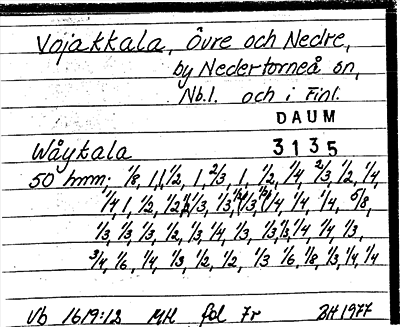 Vojakkala, Övre och Nedre,
by Nedertorneå sn,
Nb.l. och i Finl.
DAUM
3135
Wåykala
50 hmn; 1/8, 1, 1 1/2, 1, 2/3, 1, 1/2, 1/4, 2/3, 1/2, 1/4,
1/4, 1, 1/2, 1/2, 1/3, 1/3, 1/3, 1/4, 1/4, 1/4, 5/8,
1/3, 1/3, 1/3, 1/2, 1/3, 1/4, 1/3, 1/3, 1/3, 1/4, 1/4, 1/3,
3/4, 1/6, 1/4, 1/3, 1/2, 1/2, 1/3, 1/6, 1/8, 1/3, 1/4, 1/4
Vb 1619:12 MH fol 7r BH 1977